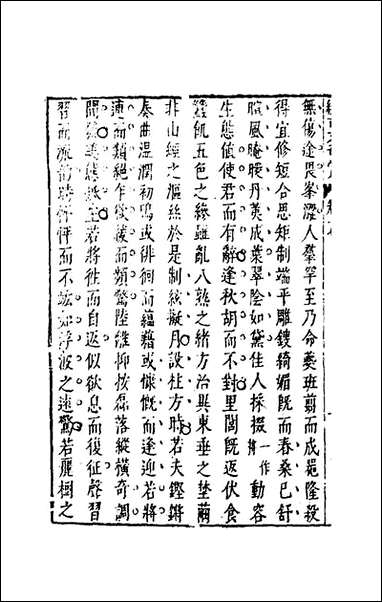 無傷途畏峯澀人羣罕至乃命蔞班翦而成龍隆殺
得宜修短合思矩制端平雕鎪綺媚旣而春桑已舒
暄風晻曖丹荑成葉翠陰如黛佳人採掇一作動容
生態值使君而有辭逢秋胡而不對里閭旣返伏食
蠶飢五色之縿雖亂八熟之緒方治與東垂之埜繭
非山經之漚絲於是制絃擬月設柱方時若夫鏗鏘
奏曲温潤初鳴或徘徊而蘊藉或慷慨而逢迎若將
連而類絕乍欲緩而頻驚陸離抑按磊落縱橫奇調
間發美態孤至若將往而自返似欲息而復征聲習
習而流韻時怦怦而不寧如浮波之遠驚若麗樹之